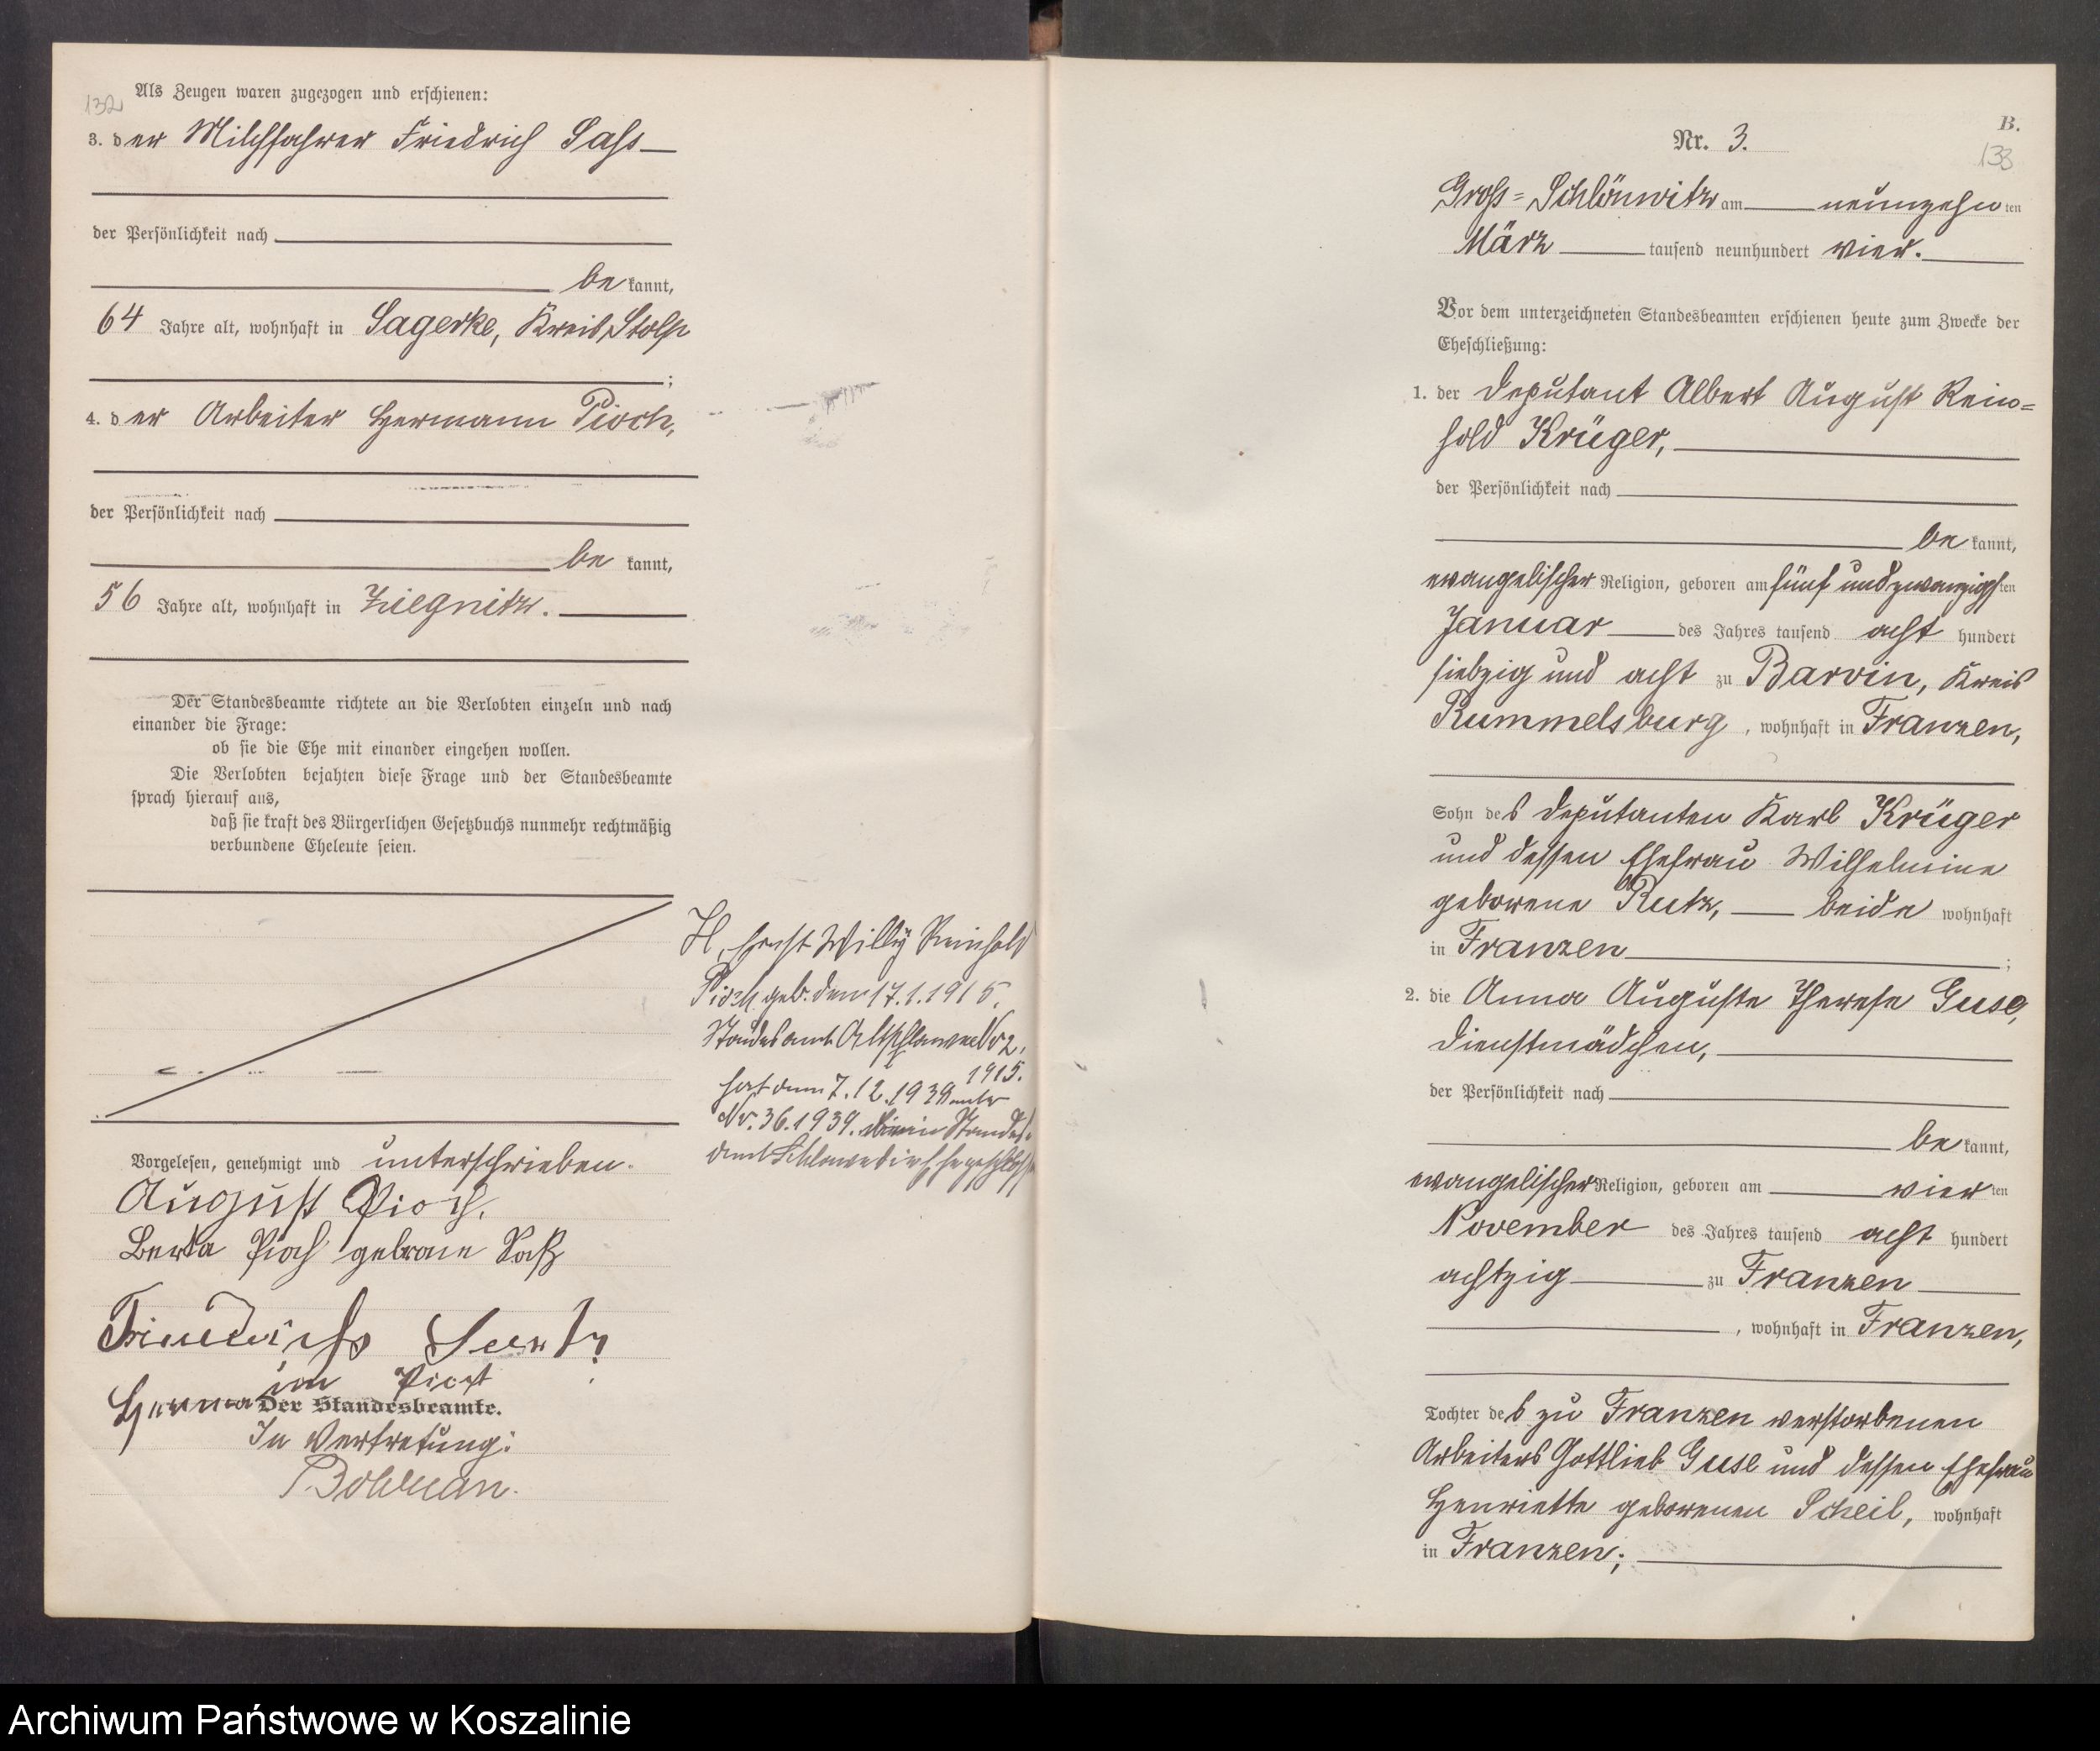 132
Als Zeugen waren zugezogen und erschienen:
3. der Milchfahrer Friedrich Sass
der Persönlichkeit nach
be kannt,
64 Jahre alt, wohnhaft in Sagerke, Kreis Stolp
;
4. der Arbeiter Hermann Pioch,
der Persönlichkeit nach
be kannt,
56 Jahre alt, wohnhaft in Ziegnitz.
Der Standesbeamte richtete an die Verlobten einzeln und nach
einander die Frage:
ob sie die Ehe mit einander eingehen wollen.
Die Verlobten bejahten diese Frage und der Standesbeamte
sprach hierauf aus,
daß sie kraft des Bürgerlichen Gesetzbuchs nunmehr rechtmäßig
verbundene Eheleute seien.
H. Ernst Willy Reinhold
Pioch geb. den 17.1.1915.
Standesamt Altschlawe Nr 2.
1915.
hat am 7.12.1939 unter
Nr. 36.1939. Standes-
amt Schlawe die Ehe
Vorgelesen, genehmigt und unterschrieben.
August Pioch.
Berta Pioch geborene Saß
Friedrich
Hermann Pioch
Der Standesbeamte.
In Vertretung:
B.
133
Nr. 3.
Gross=Schlönwitz am neunzehn ten
März tausend neunhundert vier.
Vor dem unterzeichneten Standesbeamten erschienen heute zum Zwecke der
Eheschließung:
1. der Deputant Albert August Rein=
hold Krüger,
der Persönlichkeit nach
be kannt,
evangelischer Religion, geboren am fünf und zwanzigsten
Januar des Jahres tausend acht hundert
siebzig und acht zu Barvin, Kreis
Rummelsburg, wohnhaft in Franzen,
Sohn des Deputanten Karl Krüger
und dessen Ehefrau Wilhelmine
geborene Rutz, beide wohnhaft
in Franzen ;
2. die Anna Auguste Therese Guse,
Dienstmädchen,
der Persönlichkeit nach
be kannt,
evangelischer Religion, geboren am vier ten
November des Jahres tausend acht hundert
achtzig zu Franzen
, wohnhaft in Franzen,
Tochter des zu Franzen verstorbenen
Arbeiters Gottlieb Guse und dessen Ehefrau
Henriette geborenen Scheil, wohnhaft
in Franzen;
Archiwum Państwowe w Koszalinie